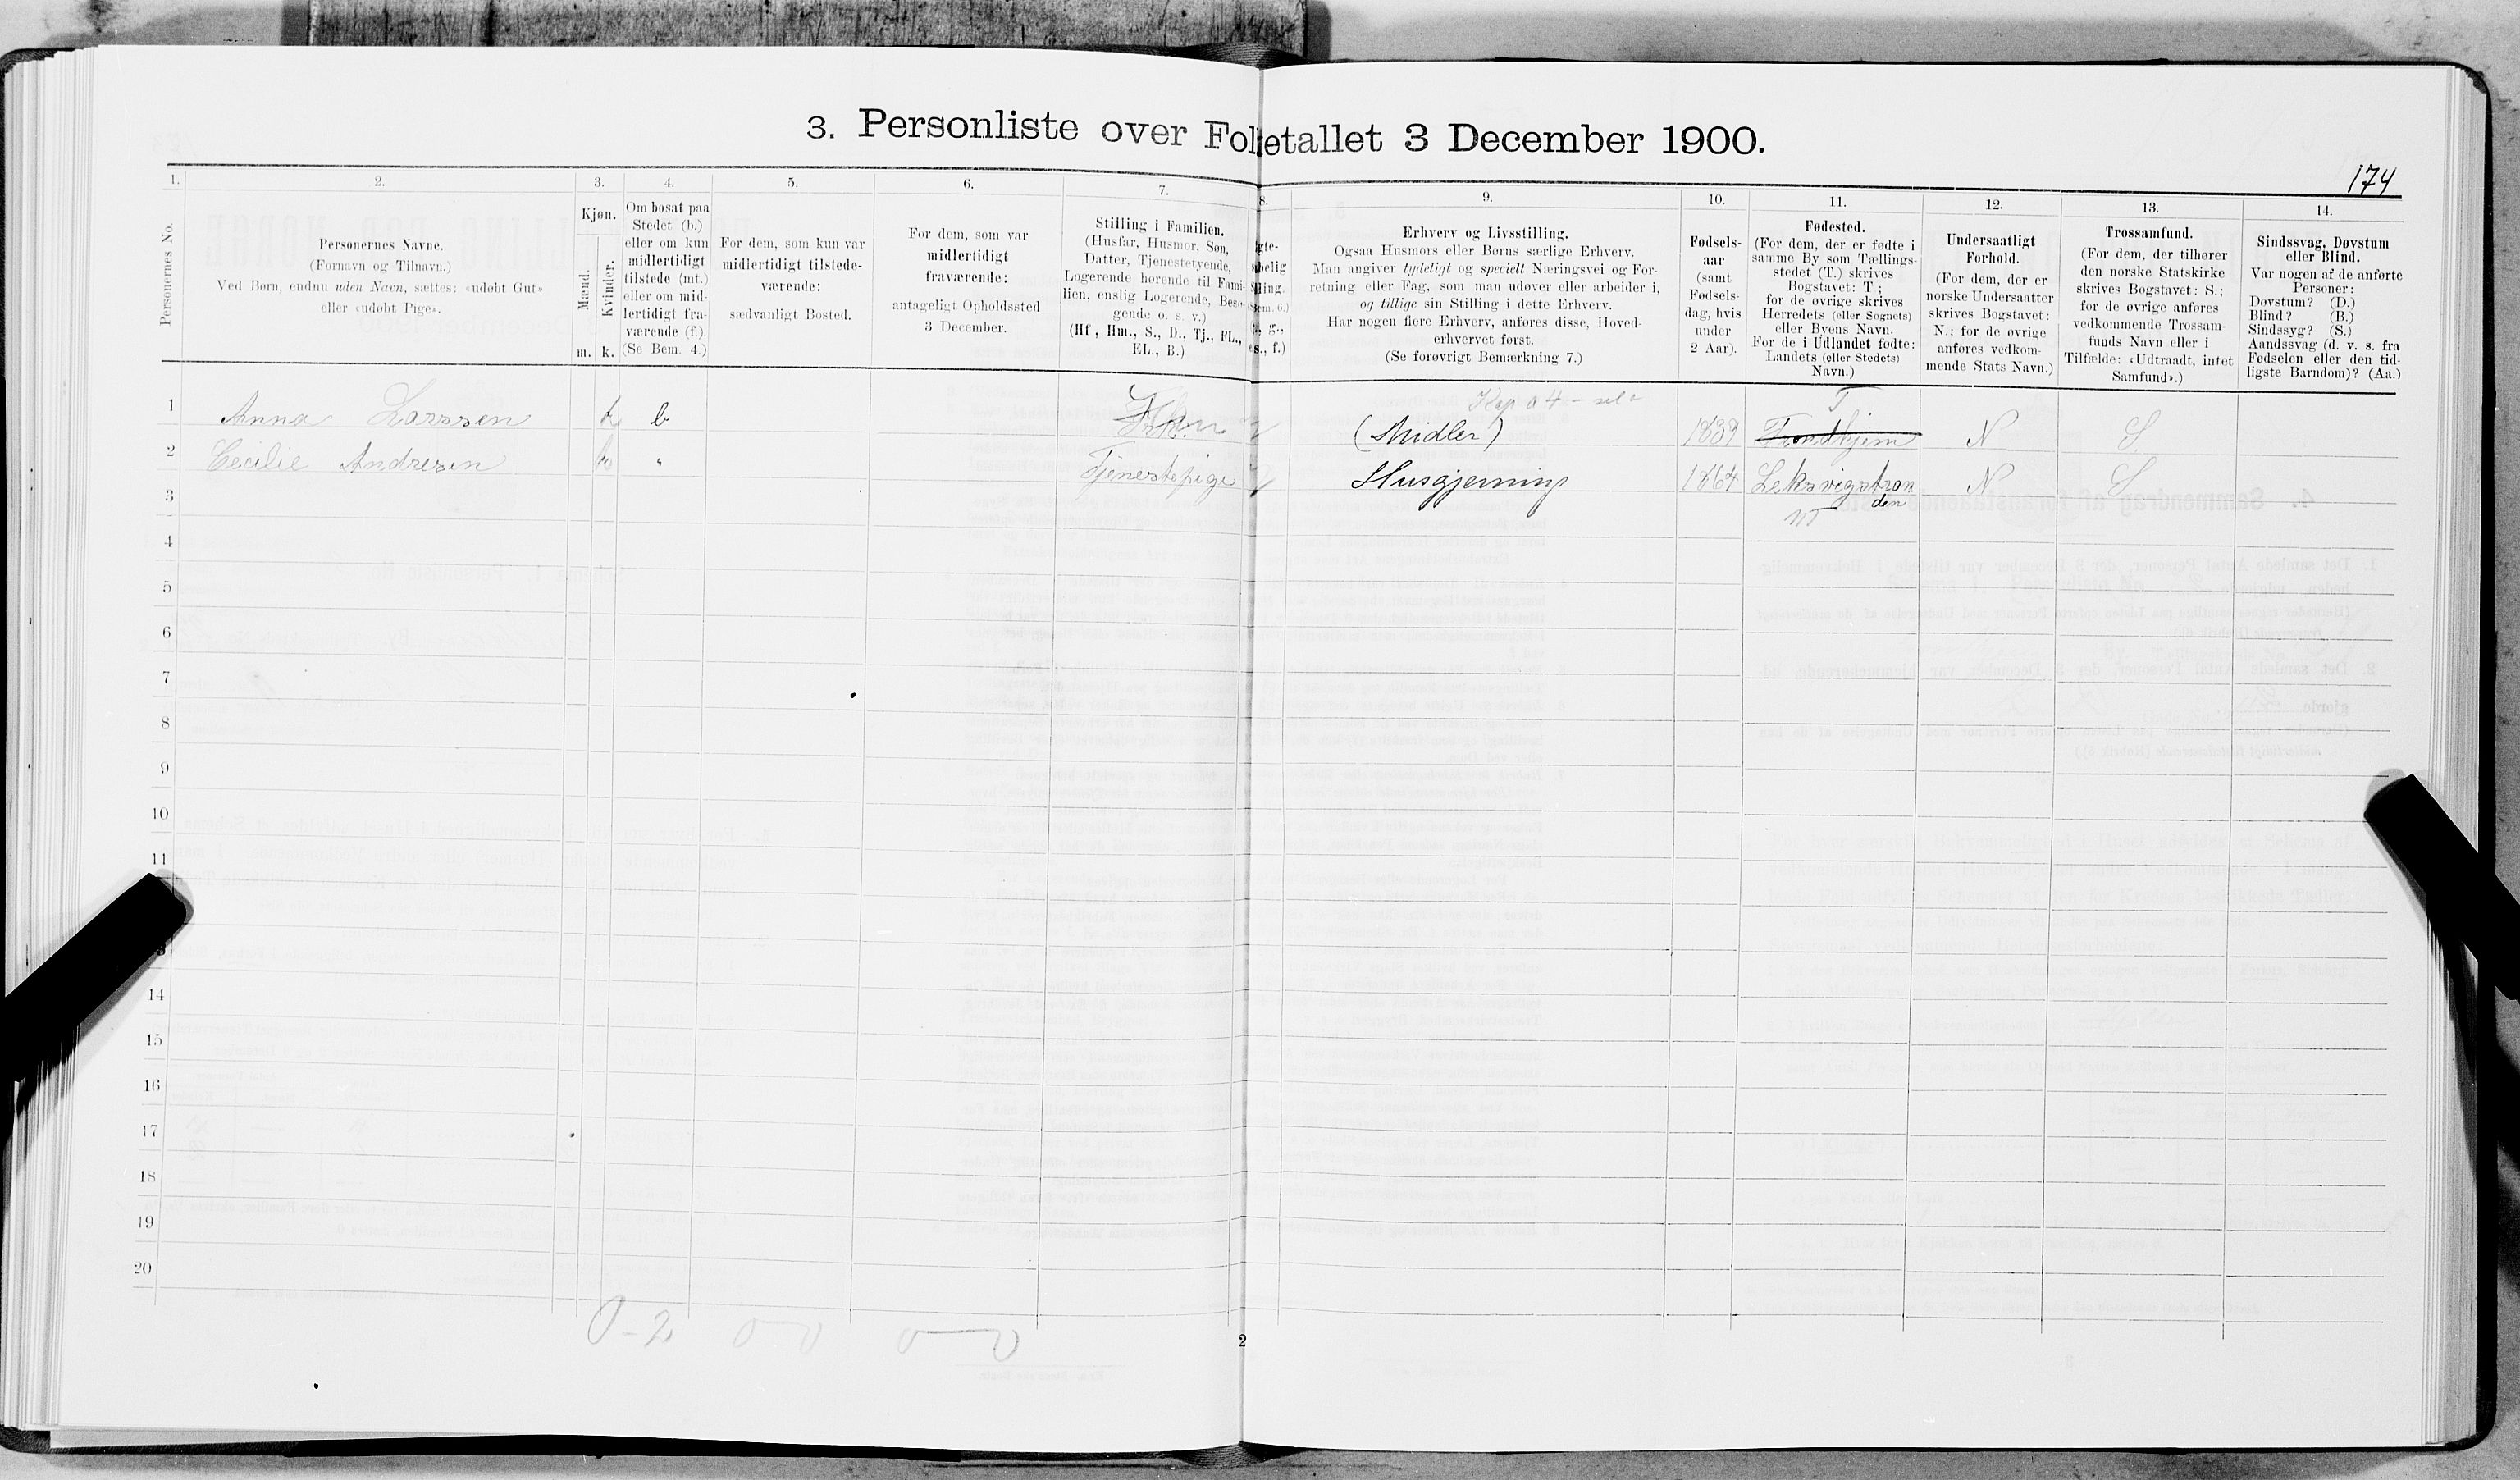 3. Personliste over Folketallet 3 December 1900.
174
1.
2.
3.
4.
5.
6.
7.
8.
9.
10.
11.
12.
13.
14.
Personernes No.
Personernes Navne.
(Fornavn og Tilnavn.)
Ved Børn, endnu uden Navn, sættes: «udøbt Gut»
eller «udøbt Pige».
Kjøn.
Mænd.
Kvinder.
m. k.
Om bosat paa
Stedet (b.)
eller om kun
midlertidigt
tilstede (mt.)
eller om mid-
lertidigt fra-
værende (f.).
(Se Bem. 4.)
For dem, som kun var
midlertidigt tilstede-
værende:
sædvanligt Bosted.
For dem, som var
midlertidigt
fraværende:
antageligt Opholdssted
3 December.
Stilling i Familien.
(Husfar, Husmor, Søn,
Datter, Tjenestetyende,
Logerende hørende til Fami-
lien, enslig Logerende, Besø-
gende o. s. v.)
(Hf, Hm., S., D., Tj., FL.,
EL., B.)
gte-
belig
lling.
em. 6.)
g.,
s., f.)
Erhverv og Livsstilling.
Ogsaa Husmors eller Børns særlige Erhverv.
Man angiver tydeligt og specielt Næringsvei og For-
retning eller Fag, som man udøver eller arbeider i,
og tillige sin Stilling i dette Erhverv.
Har nogen flere Erhverv, anføres disse, Hoved-
erhvervet først.
(Se forøvrigt Bemærkning 7.)
Fødsels-
aar
(samt
Fødsels-
dag, hvis
under
2 Aar).
Fødested.
(For dem, der er fødte i
samme By som Tællings-
stedet (T.) skrives
Bogstavet: T;
for de øvrige skrives
Herredets (eller Sognets)
eller Byens Navn.
For de i Udlandet fødte:
Landets (eller Stedets)
Navn.)
Undersaatligt
Forhold.
(For dem, der er
norske Undersaatter
skrives Bogstavet:
N.; for de øvrige
anføres vedkom-
mende Stats Navn.)
Trossamfund.
(For dem, der tilhører
den norske Statskirke
skrives Bogstavet: S.;
for de øvrige anføres
vedkommende Trossam-
funds Navn eller i
Tilfælde: «Udtraadt, intet
Samfund».)
Sindssvag, Døvstum
eller Blind.
Var nogen af de anførte
Personer:
Døvstum? (D.)
Blind? (B.)
Sindssyg? (S.)
Aandssvag (d. v. s. fra
Fødselen eller den tid-
ligste Barndom)? (Aa.)
T
1 Anna Larssen k b (Midler) 1839 Trondhjem N S
2 Cecilie Andresen k " Tjenestepige Husgjerning 1864 Leksvigstran N S
den
NT
3
4
5
6
7
8
9
10
11
14
15
16
17
18
19
20
0-2 0-0 0-0
2